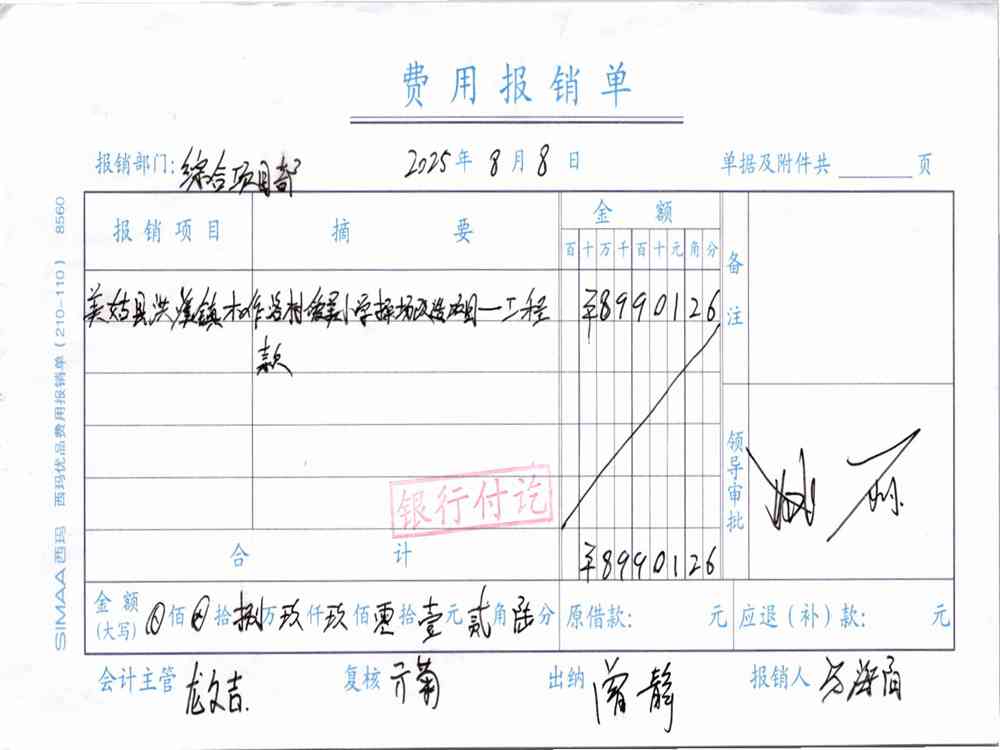 费用报销单
报销部门: 综合项目部 2025年8月8日 单据及附件共 页
报销项目 摘要 金额 备注
百十万千百十元角分
美姑县洪溪镇 村 小学操场改造项目一工程 ¥8990126
款
领导审批
银行付讫
合计 ¥8990126
金额(大写) ⊗佰⊗拾捌万玖仟玖佰零拾壹元贰角陆分 原借款: 元 应退(补)款: 元
会计主管 龙文吉 复核 菊 出纳 曾静 报销人 海
SIMAA西玛 西玛优品费用报销单(210-110) 8560